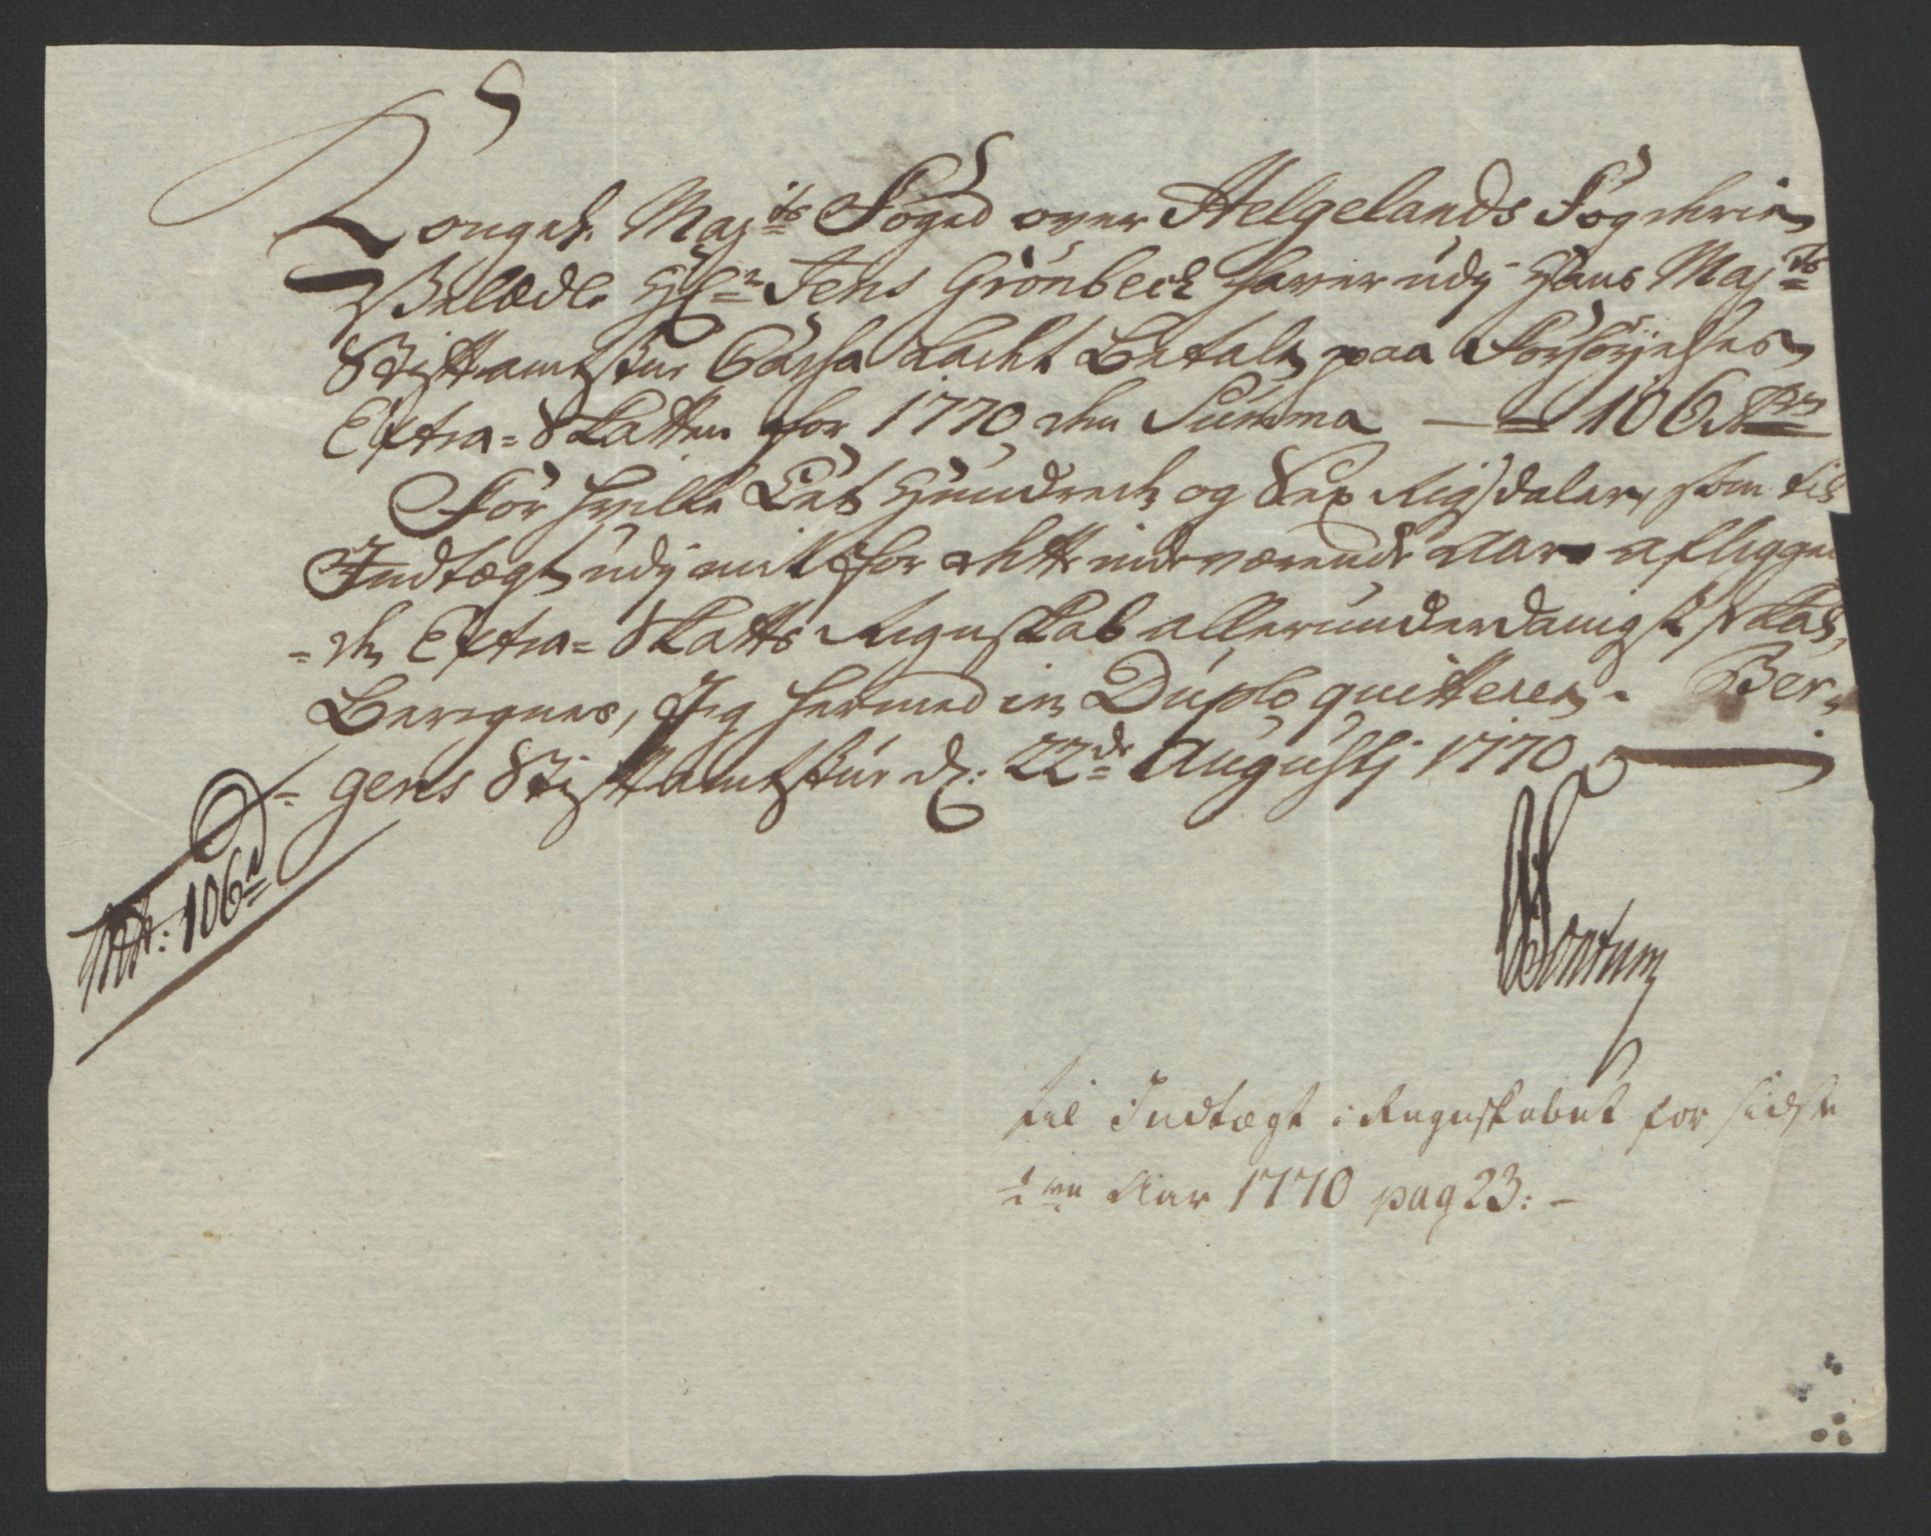 Kongel. Maj:ts Foged over Helgelands Fogderie
Velædle Hr. Jens Grönbeck haver udj Hans Maj:ts
Stiftamtstue Cassa ladet Betale paa
Extra-Skatten for 1770 den Summa — 106 Rdr
For hvilke Eet Hundrede og Sex Rigsdaler, som til
Indtægt udj mit for dette indeværende Aar aflæggen-
-de Extra-Skatts Regnskab allerunderdanigst skal
Beregnes, Jeg hermed in Duplo quitterer. Ber-
-gens Stiftamtstue d: 22de Augustij 1770
Rdr: 106
til Indtægt i Regnskabet for sidste
1/2 Aar 1770 pag 23: –